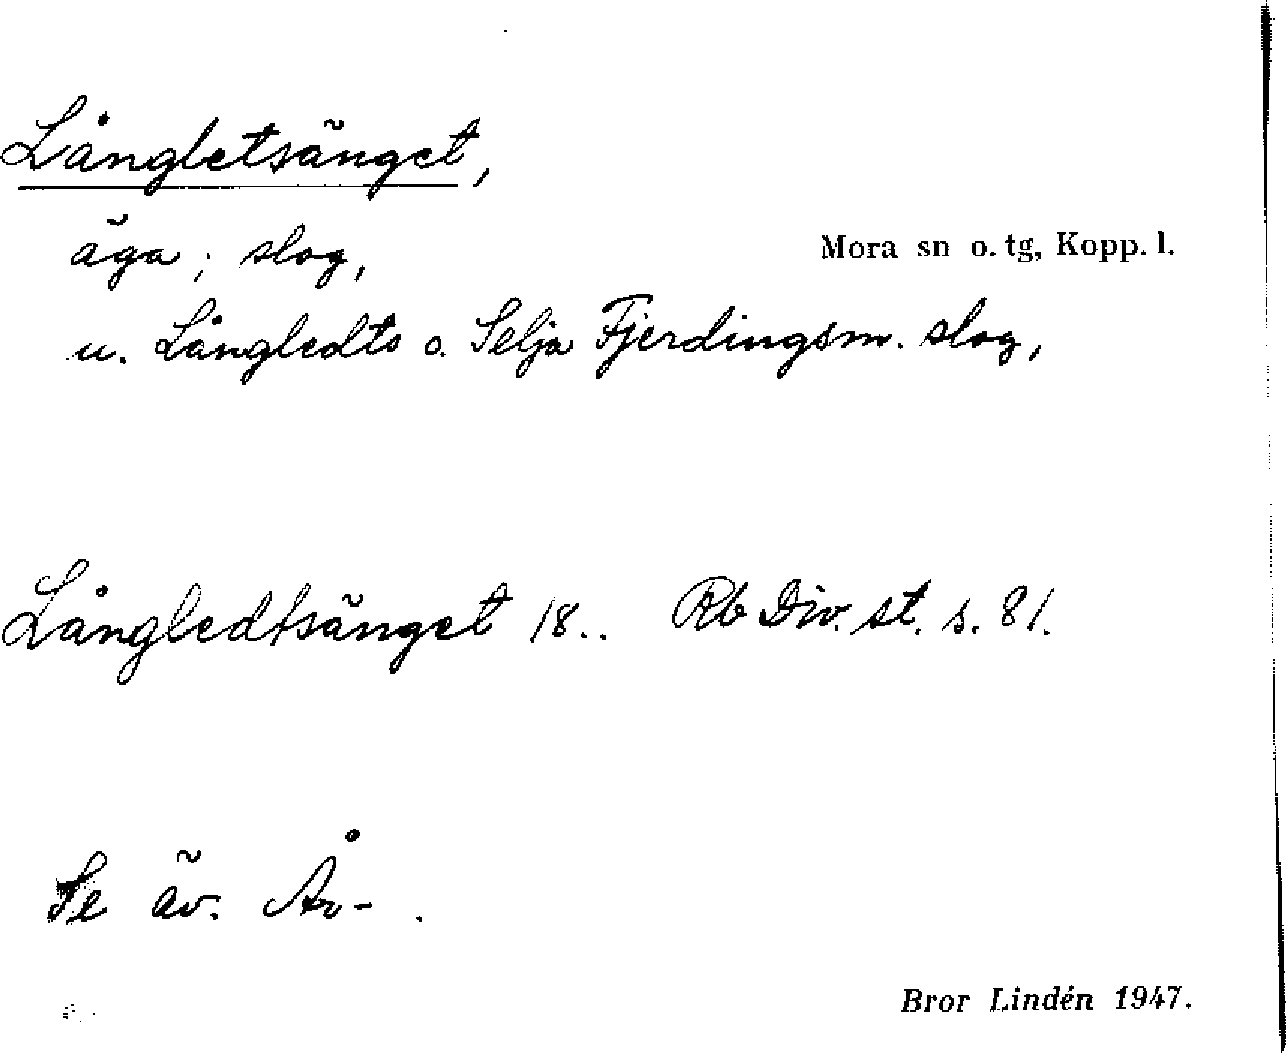 Långletsänget,
äga; slog,
Mora sn o. tg, Kopp. l.
u. Långledts o. Selja Fjerdingsm. slog,
Långledtsänget 18.. Rb Div. st. s. 81.
Se äv. Åv- .
Bror Lindén 1947.